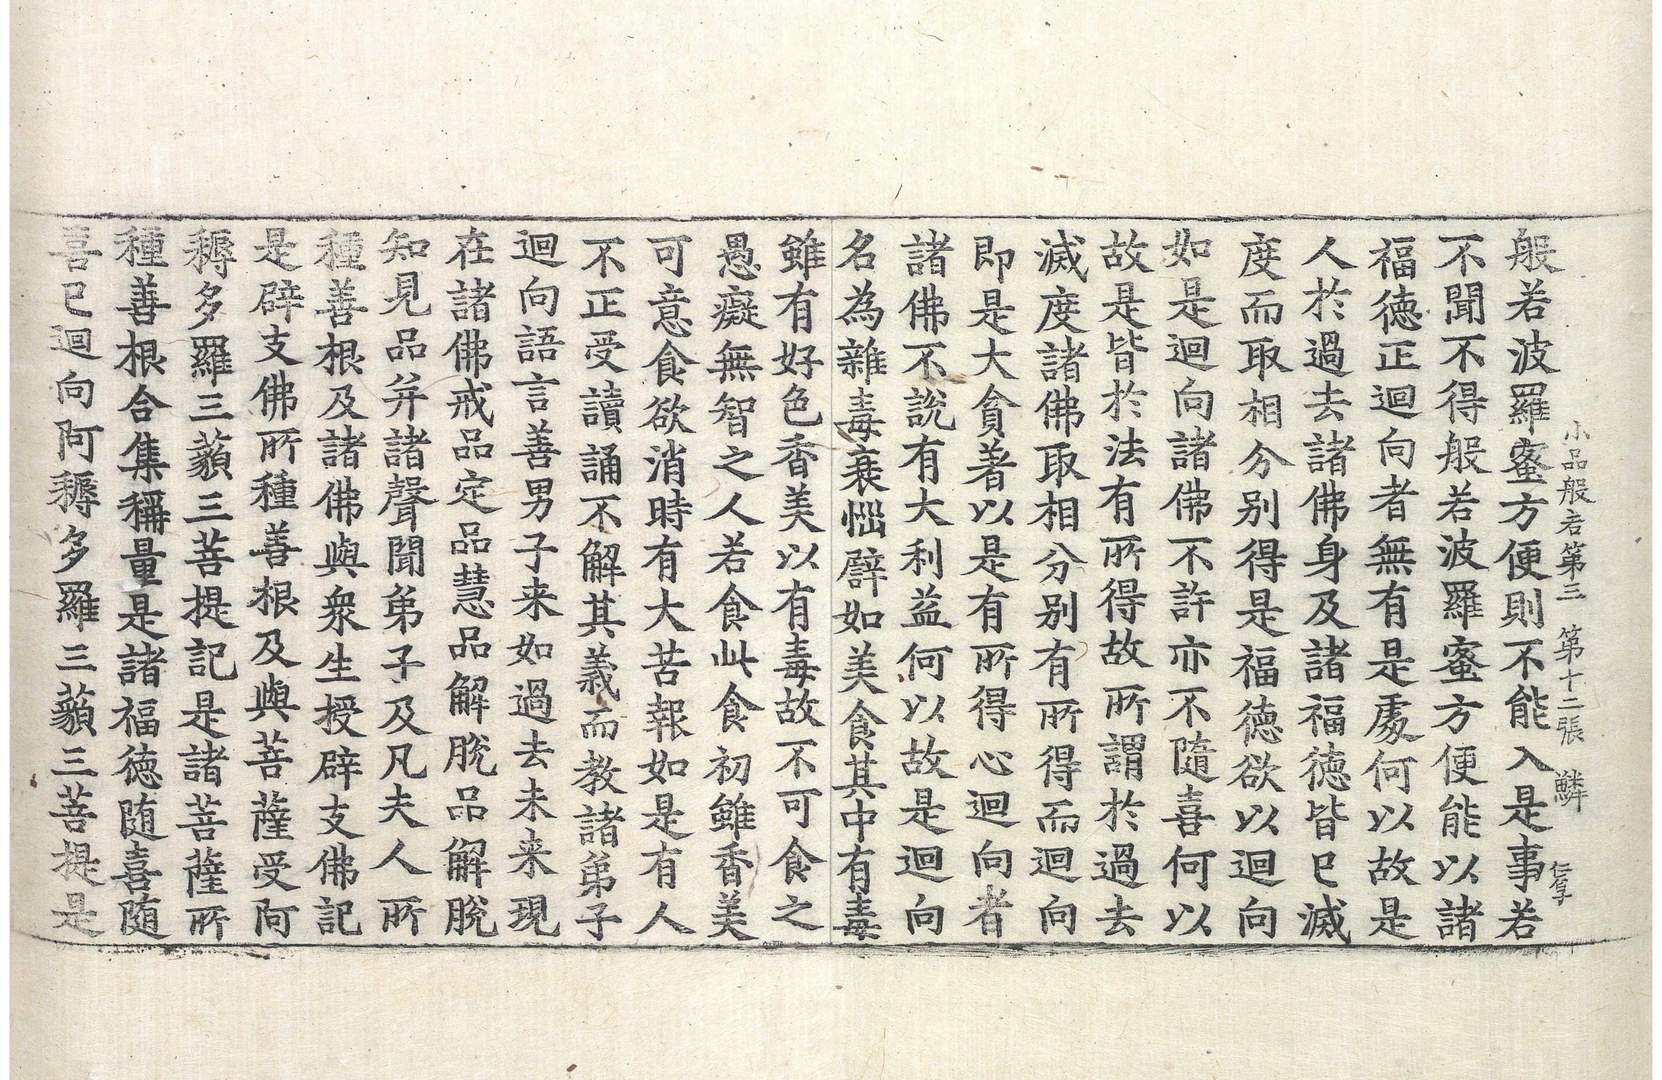 小品般若第三　第十二張　鱗
般若波羅蜜方便則不能入是事若
不聞不得般若波羅蜜方便能以諸
福德正迴向者無有是處何以故是
人於過去諸佛身及諸福德皆已滅
度而取相分别得是福德欲以迴向
如是迴向諸佛不許亦不隨喜何以
故是皆於法有所得故所謂於過去
滅度諸佛取相分别有所得而迴向
即是大貪著以是有所得心迴向者
諸佛不說有大利益何以故是迴向
名為雜毒衰惱譬如美食其中有毒
雖有好色香美以有毒故不可食之
愚癡無智之人若食此食初雖香美
可意食欲消時有大苦報如是有人
不正受讀誦不解其義而教諸弟子
迴向語言善男子来如過去未来現
在諸佛戒品定品慧品解脫品解脫
知見品并諸聲聞弟子及凡夫人所
種善根及諸佛與衆生授辟支佛記
是辟支佛所種善根及與菩薩受阿
耨多羅三藐三菩提記是諸菩薩所
種善根合集稱量是諸福德随喜随
喜已迴向阿耨多羅三藐三菩提是